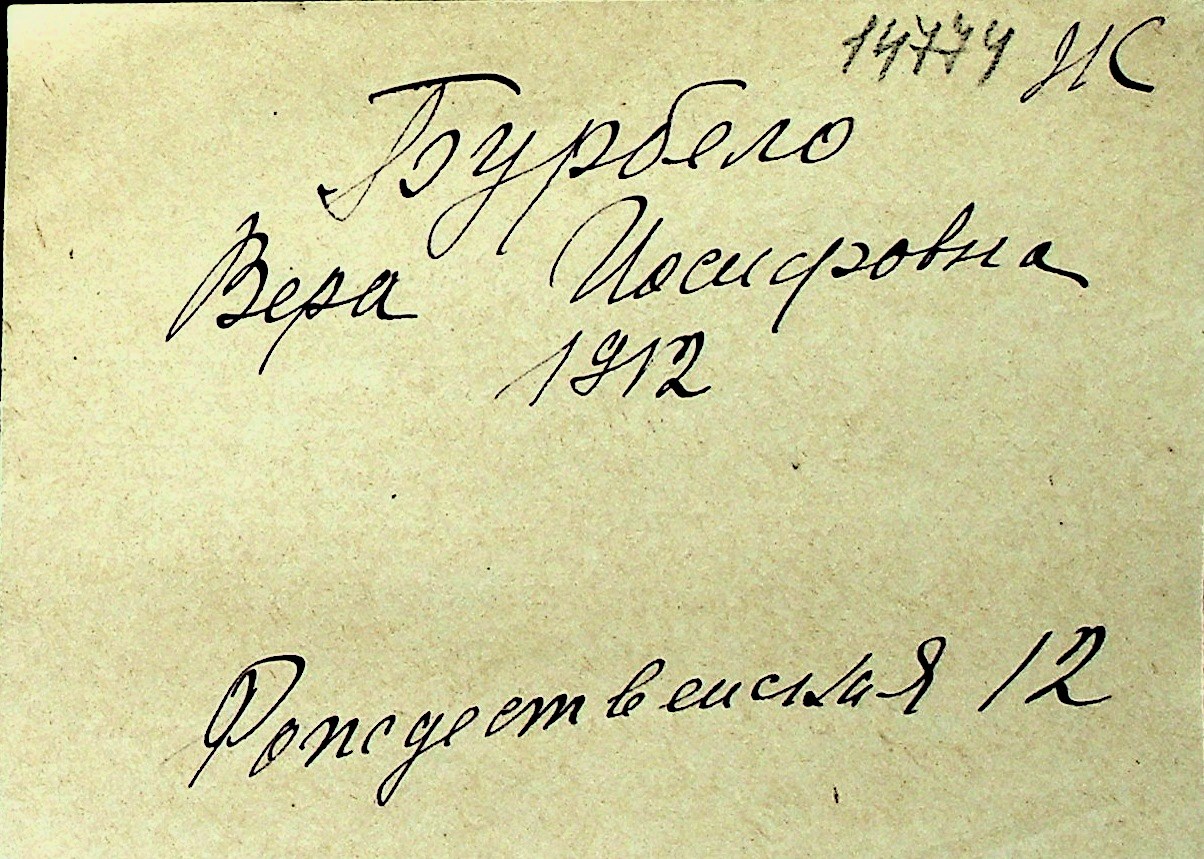 14774 ИС
Бурбело
Вера Иосифовна
1912
Рождественская 12